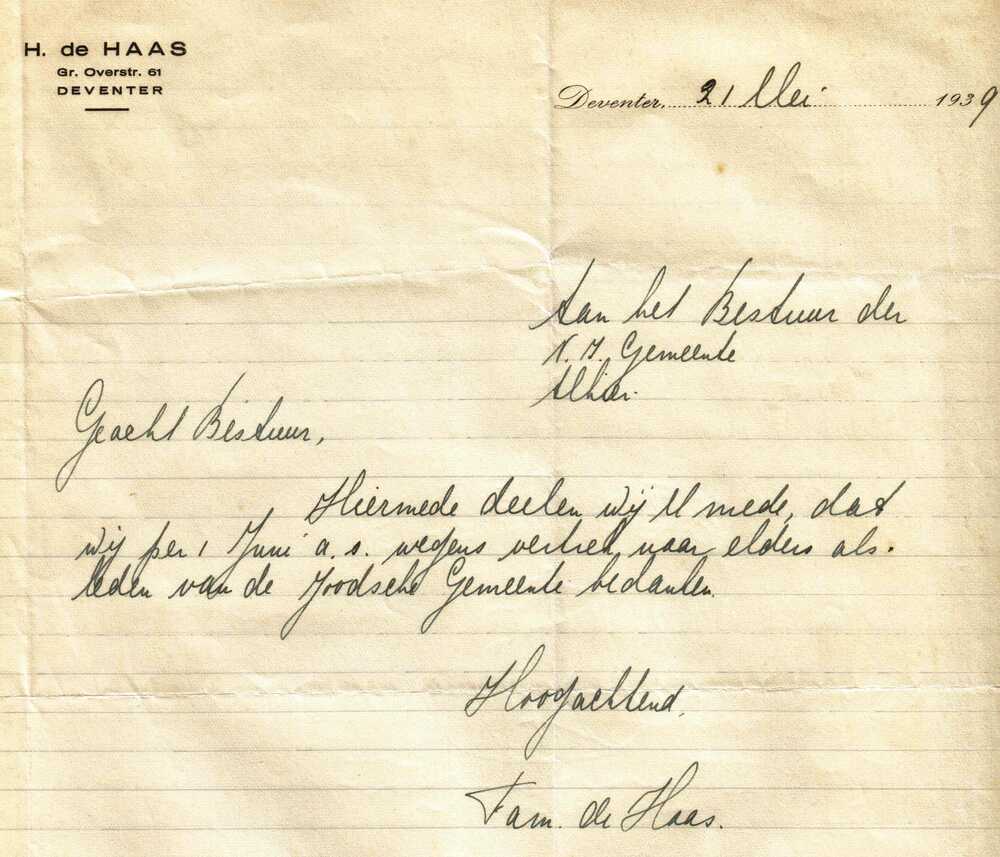 H. de HAAS
Gr. Overstr. 61
DEVENTER
Deventer, 21 Mei 1939
Aan het Bestuur der
N. I. Gemeente
Alhier.
Geacht Bestuur,
Hiermede deelen wij U mede, dat
wij per 1 Juni a. s. wegens vertrek naar elders als
leden van de Joodsche Gemeente bedanken.
Hoogachtend,
Fam. de Haas.